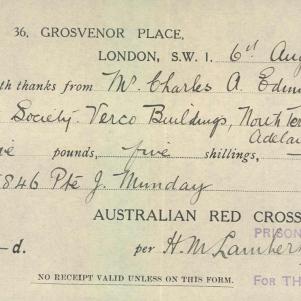 36, GROSVENOR PLACE,
LONDON, S.W. 1. 6th Aug
th thanks from Mr. Charles A. Edm
Society. Verco Buildings, North Ter
Adelai
pounds, five shillings,
846 Pte J. Munday
AUSTRALIAN RED CROSS
PRISON
—d. per H. M Lambert
NO RECEIPT VALID UNLESS ON THIS FORM.
For TH